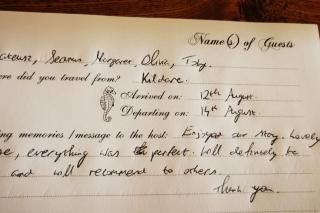 Name(s) of Guests
Seamus, Margaret, Olivia, Toby.
ere did you travel from? Kildare.
Arrived on: 12th August.
Departing on: 14th August.
ng memories / message to the host: Enjoyed our stay. Lovely
se, everything was perfect. Will definitely be
and will recommend to others.
Thank you.